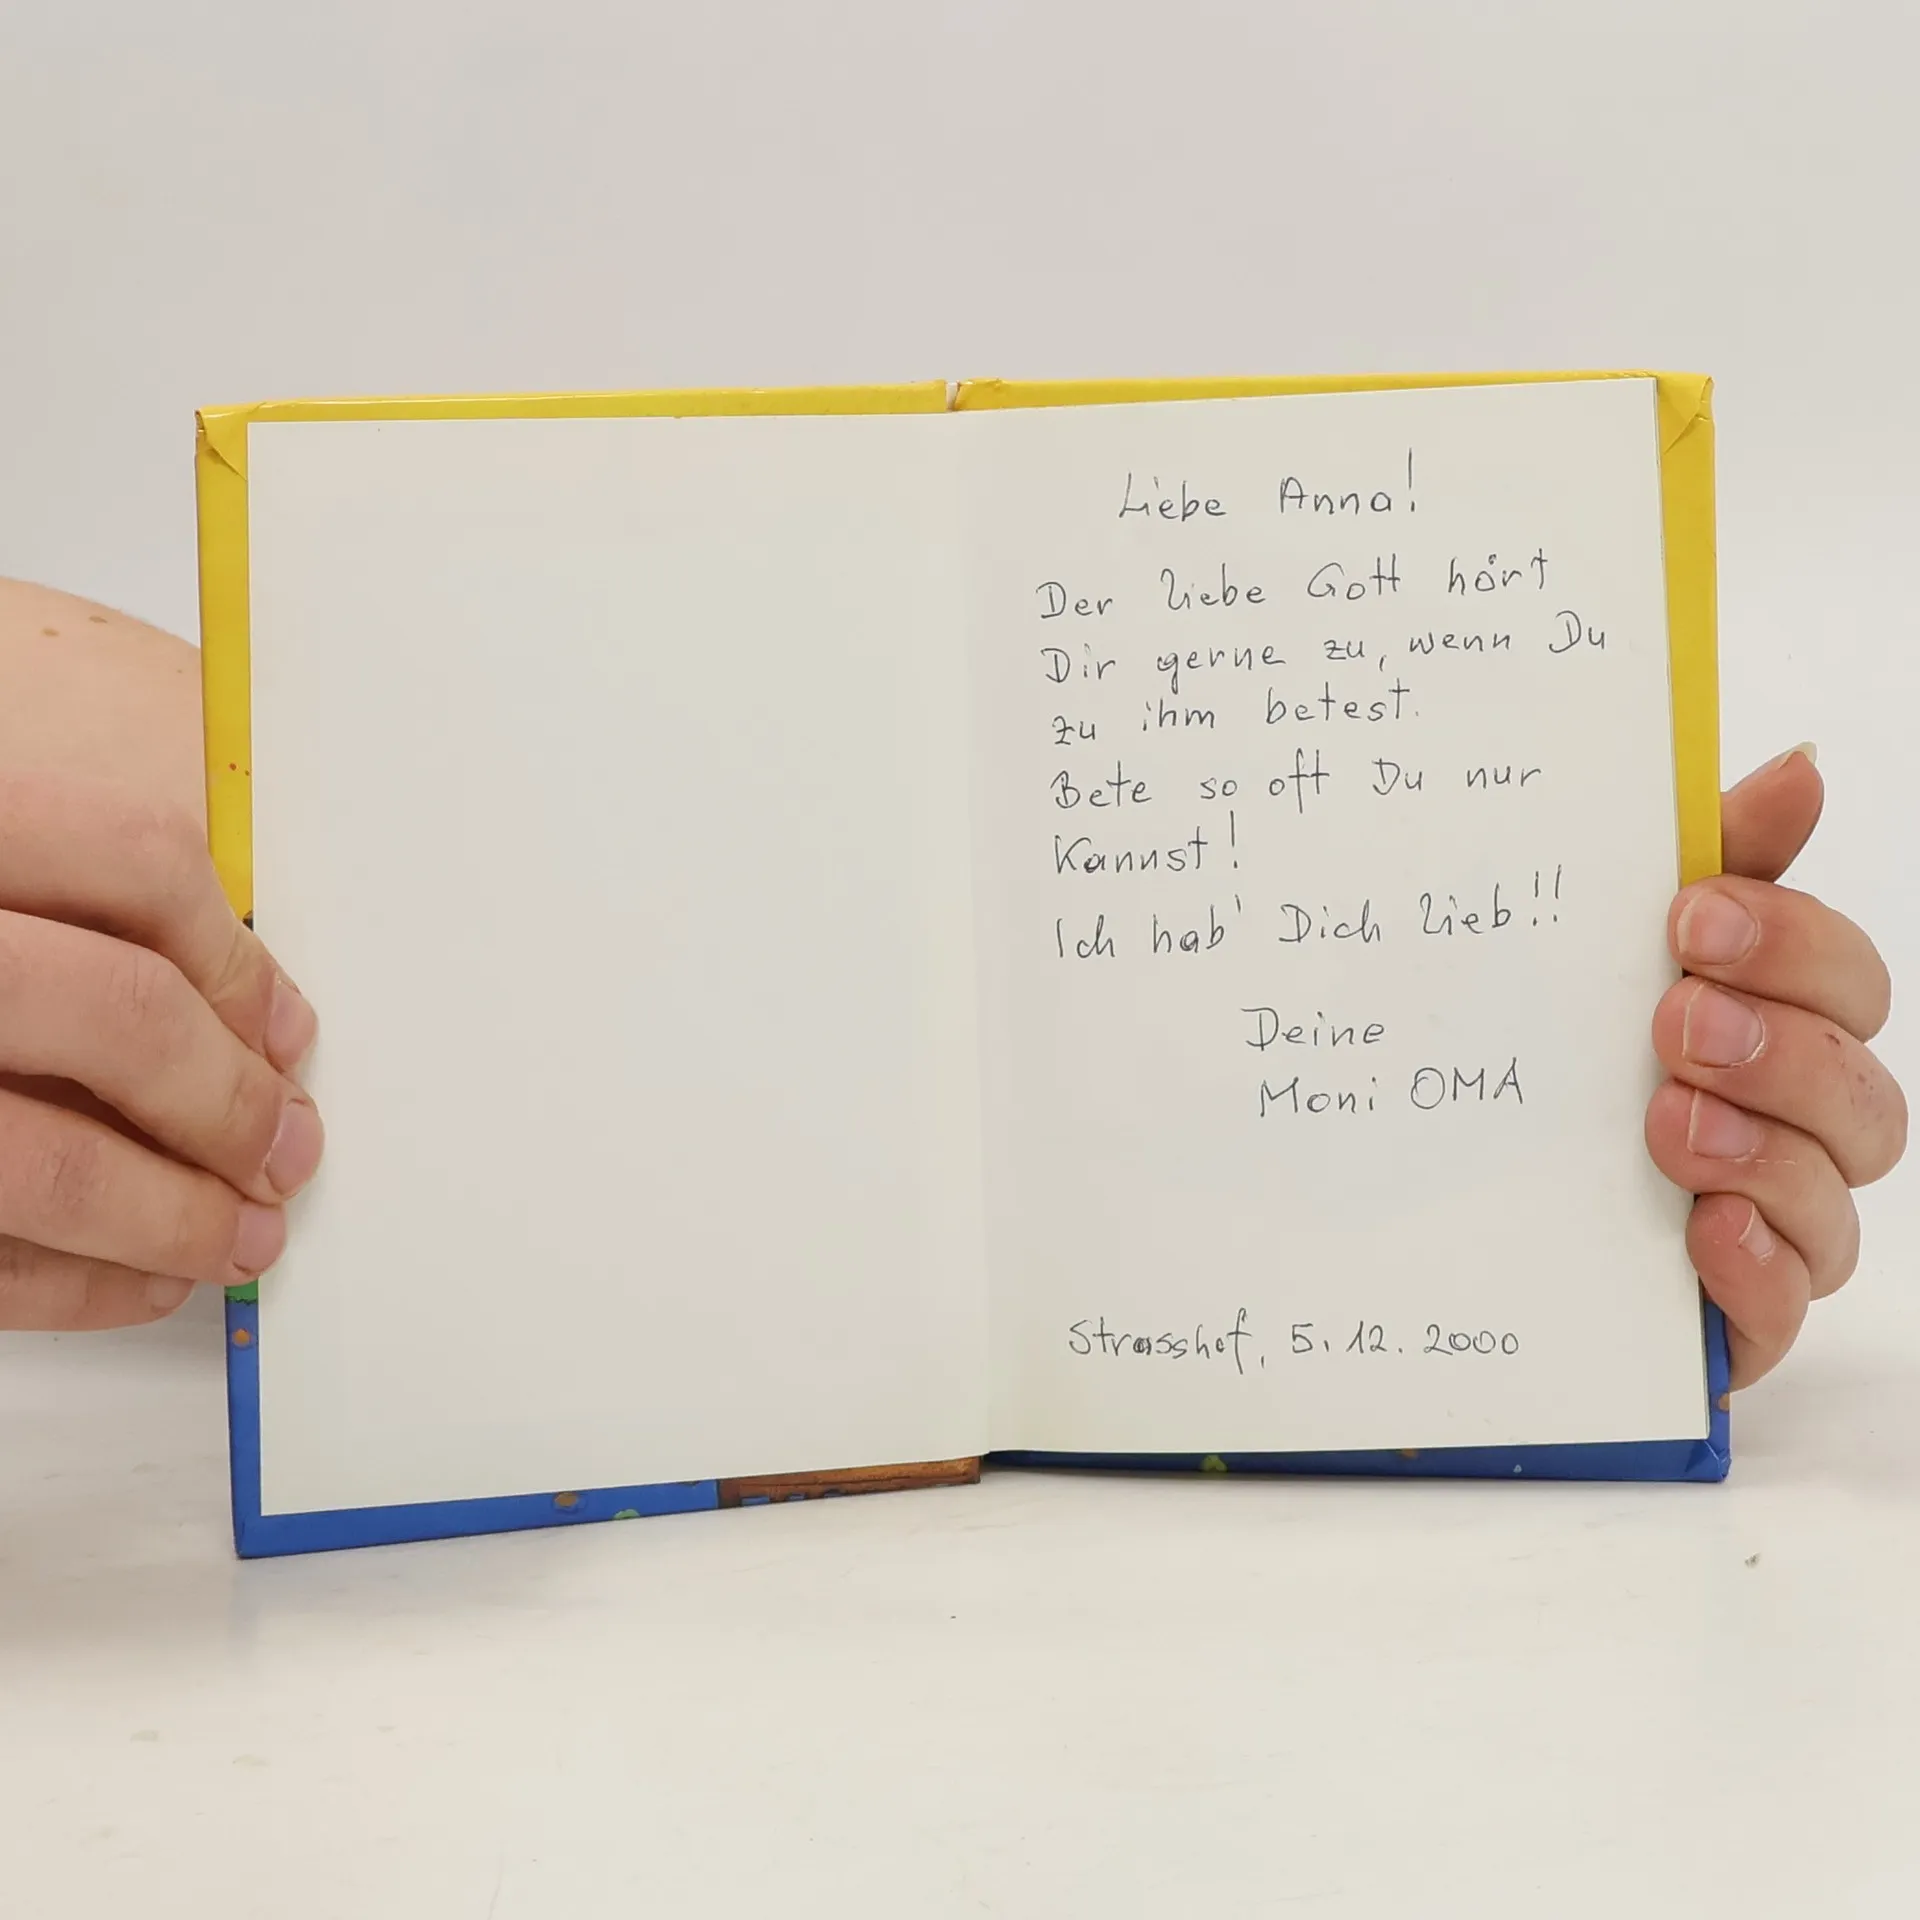 Liebe Anna!
Der liebe Gott hört
Dir gerne zu, wenn Du
zu ihm betest.
Bete so oft Du nur
Kannst!
Ich hab' Dich lieb!!
Deine
Moni OMA
Strasshof, 5.12.2000